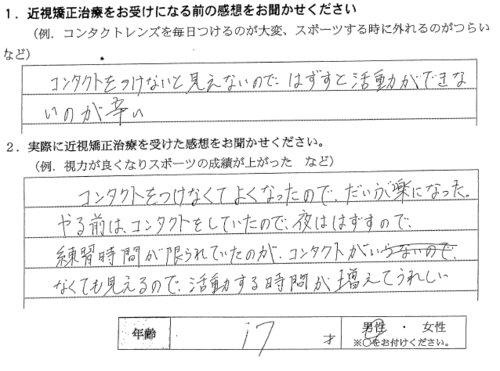 1．近視矯正治療をお受けになる前の感想をお聞かせください
（例．コンタクトレンズを毎日つけるのが大変、スポーツする時に外れるのがつらい
など）
コンタクトをつけないと見えないので、はずすと活動ができな
いのが辛い
2．実際に近視矯正治療を受けた感想をお聞かせください。
（例．視力が良くなりスポーツの成績が上がった　など）
コンタクトをつけなくてよくなったので、だいぶ楽になった。
やる前は、コンタクトをしていたので、夜ははずすので、
練習時間が限られていたのが、コンタクトがいらないので、
なくても見えるので、活動する時間が増えてうれしい
年齢　17　才　男性　・　女性
※○をお付けください。